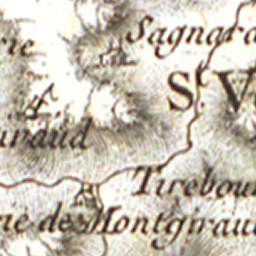 rie
Sagnara
St. V
uraud
Tirebou
rie de Montgiraud